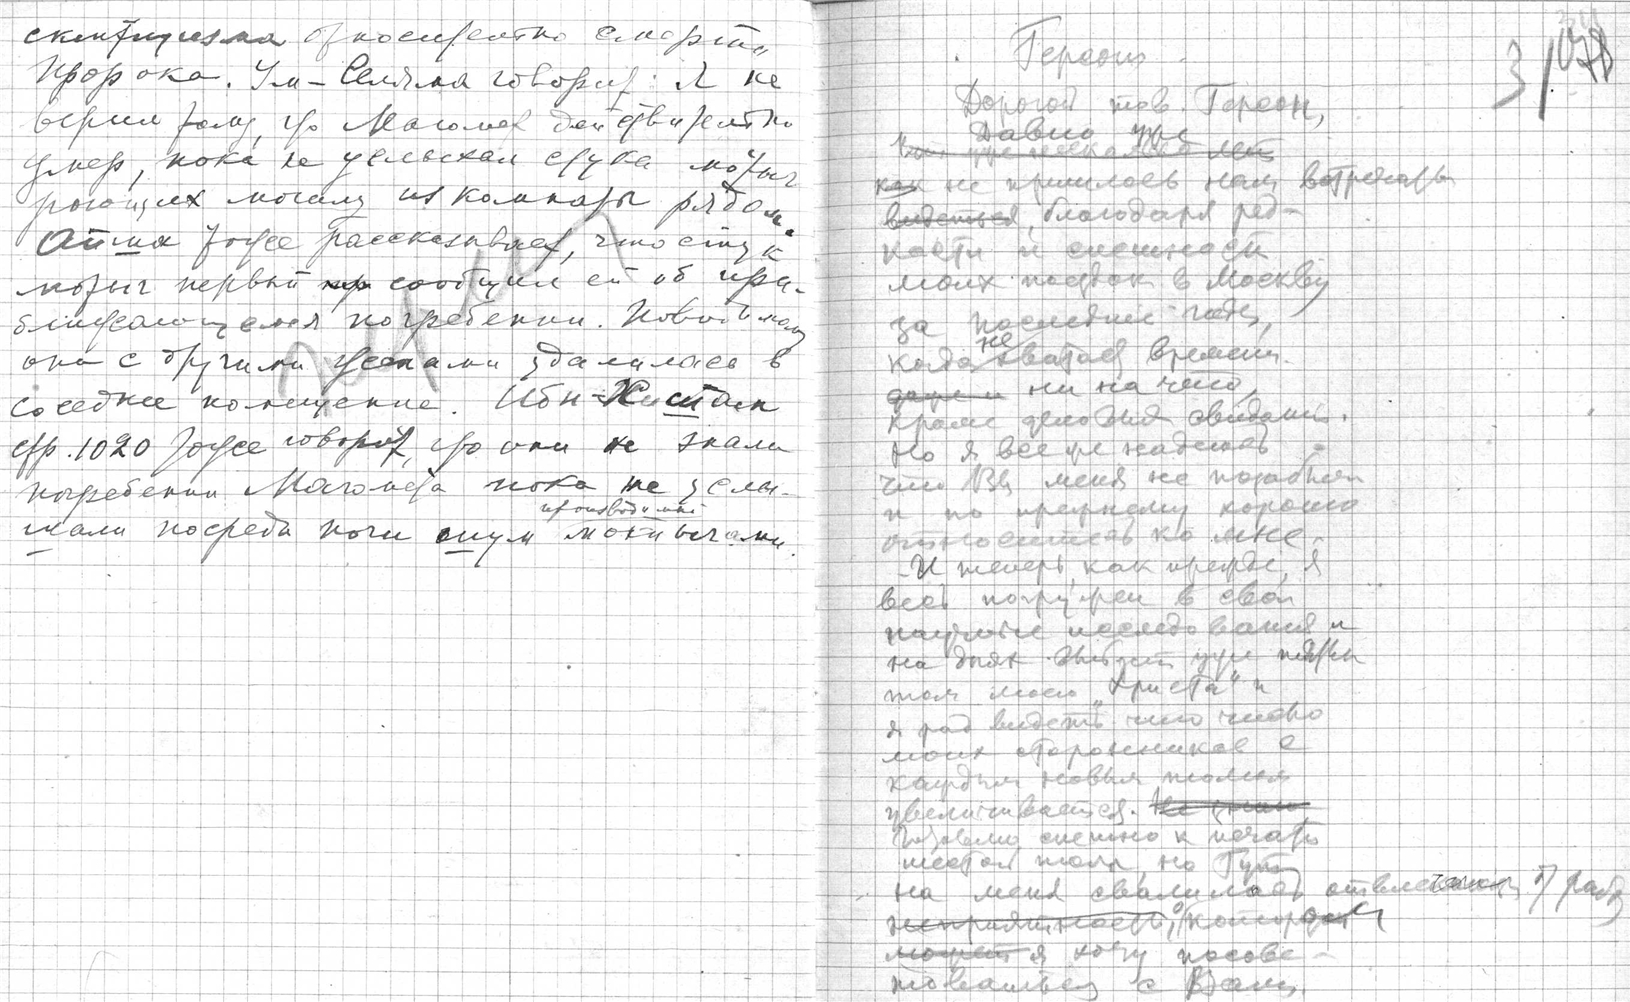 скептицизма относительно смерти
пророка. Ум-Сельма говорит: Я не
верил тому, что Магомет действительно
умер, пока не услыхал стука мотыг
роющих могилу из комнаты рядом.
Айша тоже рассказывает, что стук
мотыг первый сообщил ей об при-
ближающемся погребении. По
она с другими женами удалилась в
соседнее помещение. Ибн-Хишам
стр. 1020 тоже говорит, что они не знали
погребении Магомета пока не услы-
шали посреди ночи шум производимый мотыгами.
3/078
Герсон
Дорогой тов. Герсон,
Давно уже
как не пришлось нам встречать
видеться, благодаря ред-
кости и спешности
моих поездок в Москву
за последние годы,
когда не хватает времени
даже и ни на что,
кроме деловых свиданий.
Но я все же надеюсь
что Вы меня не позабыли
и по прежнему хорошо
относитесь ко мне.
И теперь, как прежде, я
весь погружен в свои
научные исследования и
на днях выйдет уже пятый
том моего „Христа" и
я рад видеть что число
моих сторонников с
каждым новым томом
увеличивается.
Готовлю спешно к печати
шестой том, но тут
на меня свалилась
неприятность, о которой
может я хочу посове-
товаться с Вами.